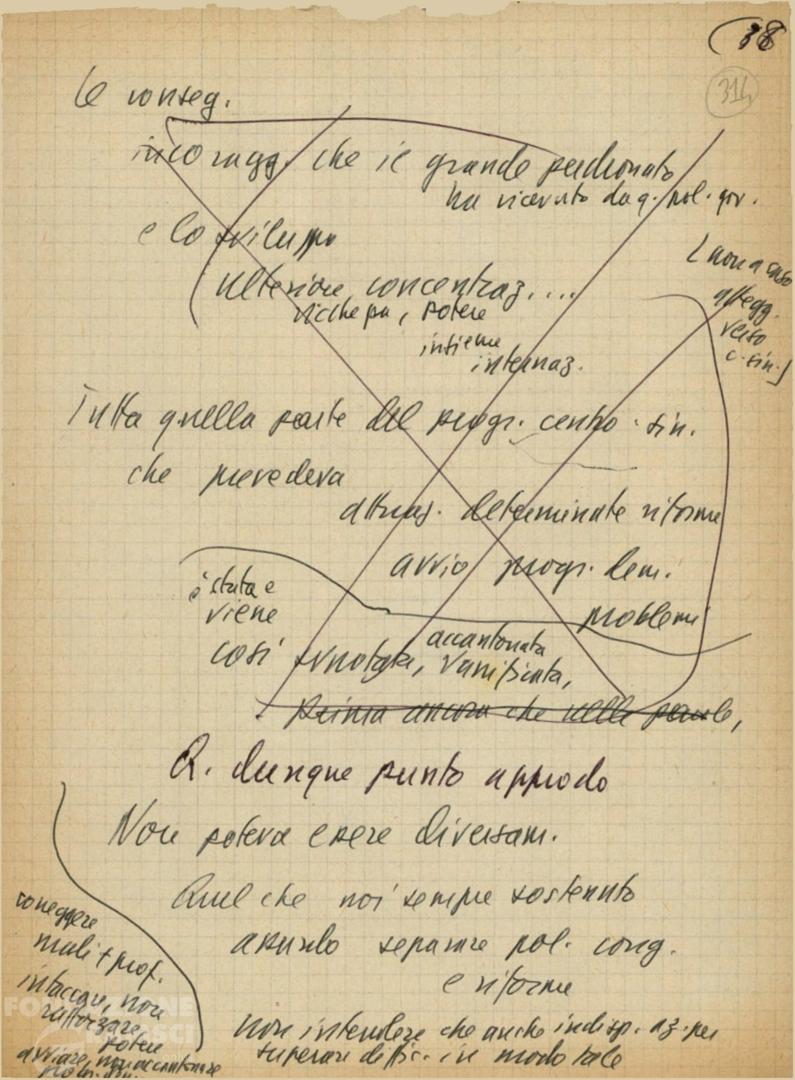 38
314
Le conseg.
incoragg. che il grande padronato
ha ricevuto da q. pol. gov.
e lo sviluppo
ulteriore concentraz. ....
ricchezza, potere
insieme
internaz.
[non a caso
attegg.
verso
c. sin.]
Tutta quella parte del progr. centro-sin.
che prevedeva
attuaz. determinate riforme
avvio progr. dem.
problemi
è stata e
viene
così svuotata, accantonata
vanificata,
prima ancora che nelle parole,
Q. dunque punto approdo
Non poteva essere diversam.
Quel che noi sempre sostenuto
assurdo separare pol. cong.
e riforme
non intendere che anche indisp. az. per
superare diffic. in modo tale
correggere
mali + prof.
intaccare, non
rafforzare
potere
avviare, non accantonare